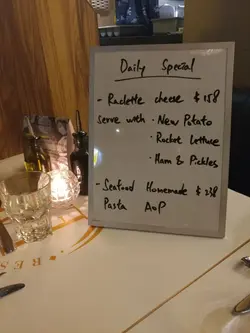 Daily Special
- Raclette cheese $158
serve with · New Potato
· Rocket Lettuce
· Ham & Pickles
- Seafood Homemade $238
Pasta AOP